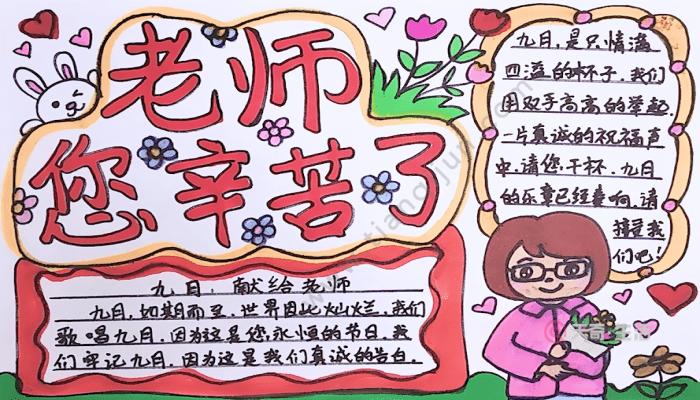 老师
您辛苦了
九月,是只情满
四溢的杯子,我们
用双手高高的举起,
一片真诚的祝福声
中,请您干杯,九月
的乐章已经奏响,请
接受我
们吧!
九月,献给老师
九月,如期而至,世界因此灿烂,我们
歌唱九月,因为这是您永恒的节日,我
们牢记九月,因为这是我们真诚的告白.